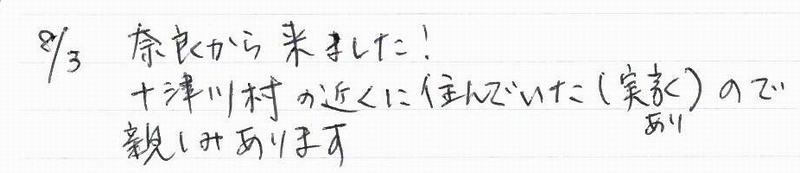 8/3 奈良から来ました!
十津川村の近くに住んでいた(実家)ので
あり
親しみあります